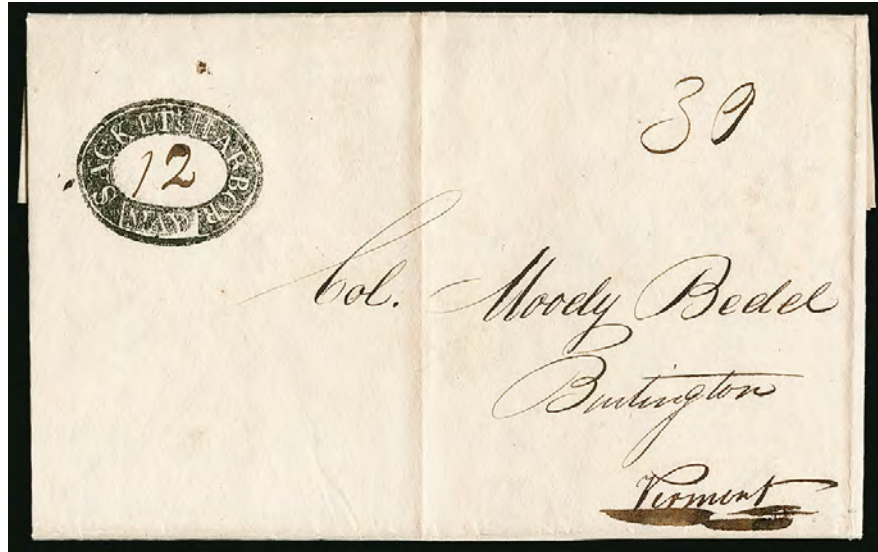 SACKET HARBOR
N.Y.
12
39
Col. Moody Bedel
Burlington
Vermont